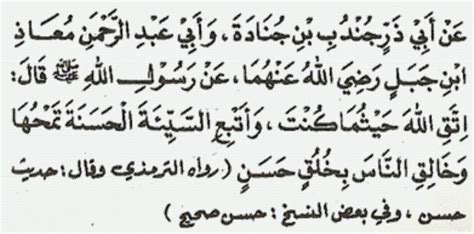 عَنْ أَبِي ذَرٍّ جُنْدُبِ بْنِ جُنَادَةَ ، وَأَبِي عَبْدِ الرَّحْمَنِ مُعَاذِ
ابْنِ جَبَلٍ رَضِيَ اللهُ عَنْهُمَا ، عَنْ رَسُولِ اللهِ ﷺ قَالَ :
اِتَّقِ اللهَ حَيْثُمَا كُنْتَ ، وَأَتْبِعِ السَّيِّئَةَ الْحَسَنَةَ تَمْحُهَا
وَخَالِقِ النَّاسَ بِخُلُقٍ حَسَنٍ ( رواه الترمذي وقال : حديث
حسن ، وفي بعض النسخ : حسن صحيح )